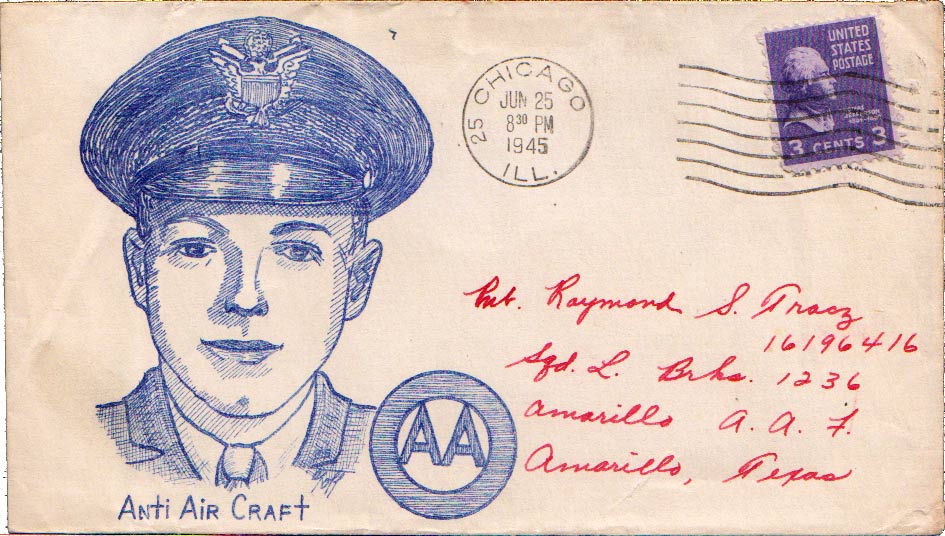 25 CHICAGO
JUN 25
8 30 PM
1945
ILL.
UNITED
STATES
POSTAGE
3 CENTS 3
Pvt. Raymond S. Tracz
16196416
Sqd. L. Brks. 1236
Amarillo A. A. F.
Amarillo, Texas
AA
Anti Air Craft